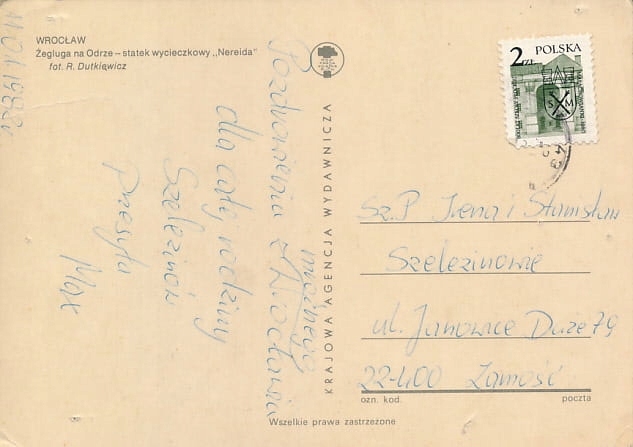 WROCŁAW
Żegluga na Odrze – statek wycieczkowy „Nereida"
fot. R. Dutkiewicz
Pozdrowienia z
mroźnego
Wrocławia
dla całej rodziny
Szelezinów
Przesyła
Max
KRAJOWA AGENCJA WYDAWNICZA
2 ZŁ
POLSKA
S M
Sz.P Irena i Stanisław
Szelezinowie
ul. Janowice Duże 79
22-400 Zamość
ozn. kod.
poczta
Wszelkie prawa zastrzeżone